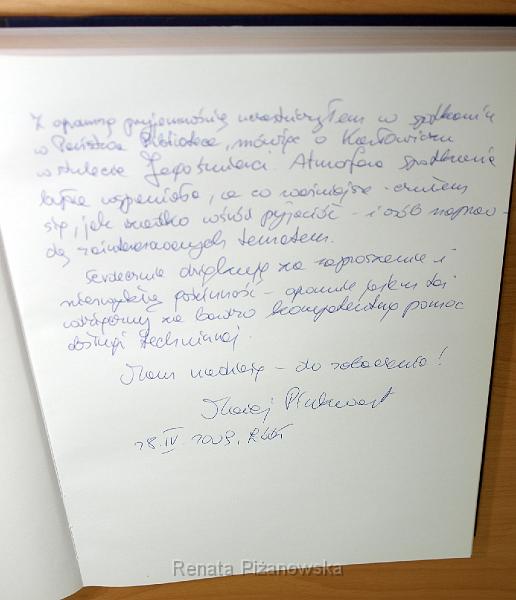 Z ogromną przyjemnością uczestniczyłem w spotkaniu
w Państwa Bibliotece, mówiąc o Karłowiczu
w stulecie Jego śmierci. Atmosfera spotkania
była wspaniała, a co ważniejsze - czułem
się, jak rzadko wśród przyjaciół - i osób napraw-
dę zainteresowanych tematem.
Serdecznie dziękuję za zaproszenie i
niezwykłą gościnność - ogromnie jestem też
wdzięczny za bardzo kompetentną pomoc
obsługi technicznej.
Mam nadzieję - do zobaczenia!
Maciej Pinkwart
28.IV.2009,
Renata Piżanowska